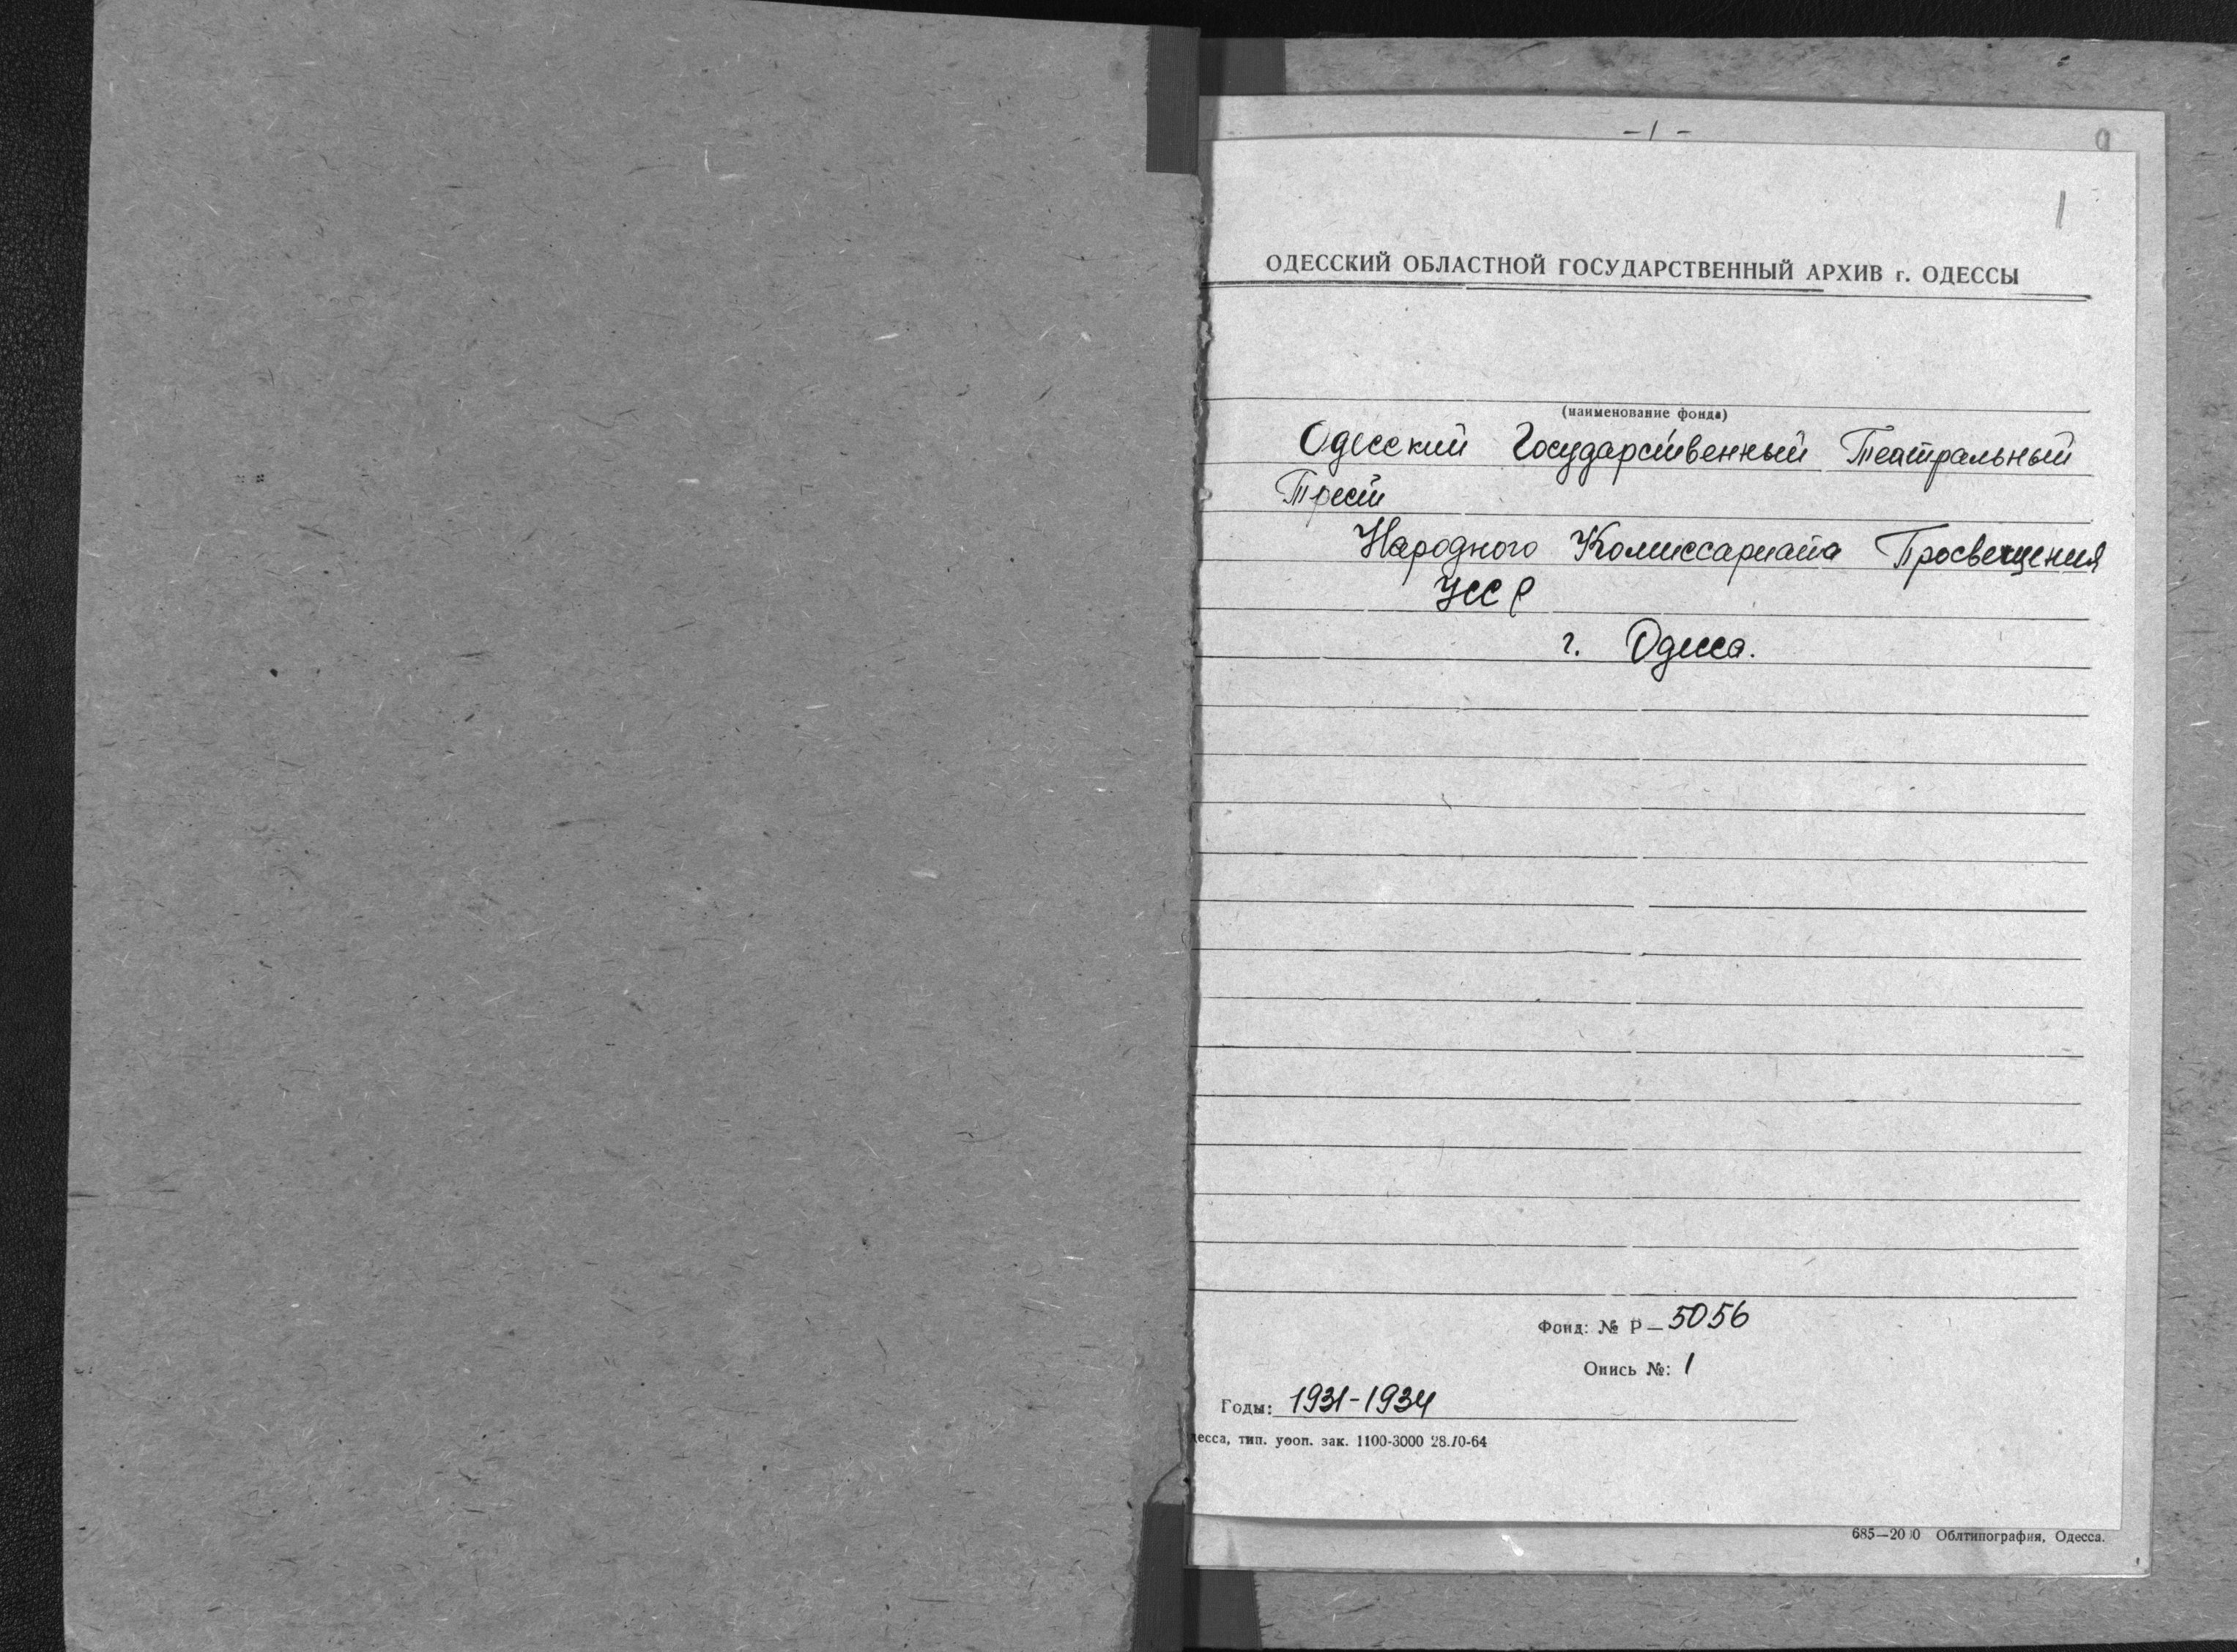 - 1 -
1
ОДЕССКИЙ ОБЛАСТНОЙ ГОСУДАРСТВЕННЫЙ АРХИВ г. ОДЕССЫ
(наименование фонда)
Одесский Государственный Театральный
Трест
Народного Комиссариата Просвещения
УССР
г. Одесса.
Фонд: № Р—5056
Опись №: 1
Годы: 1931-1934
десса, тип. уооп. зак. 1100-3000 28.10-64
685—2000 Облтипография, Одесса.